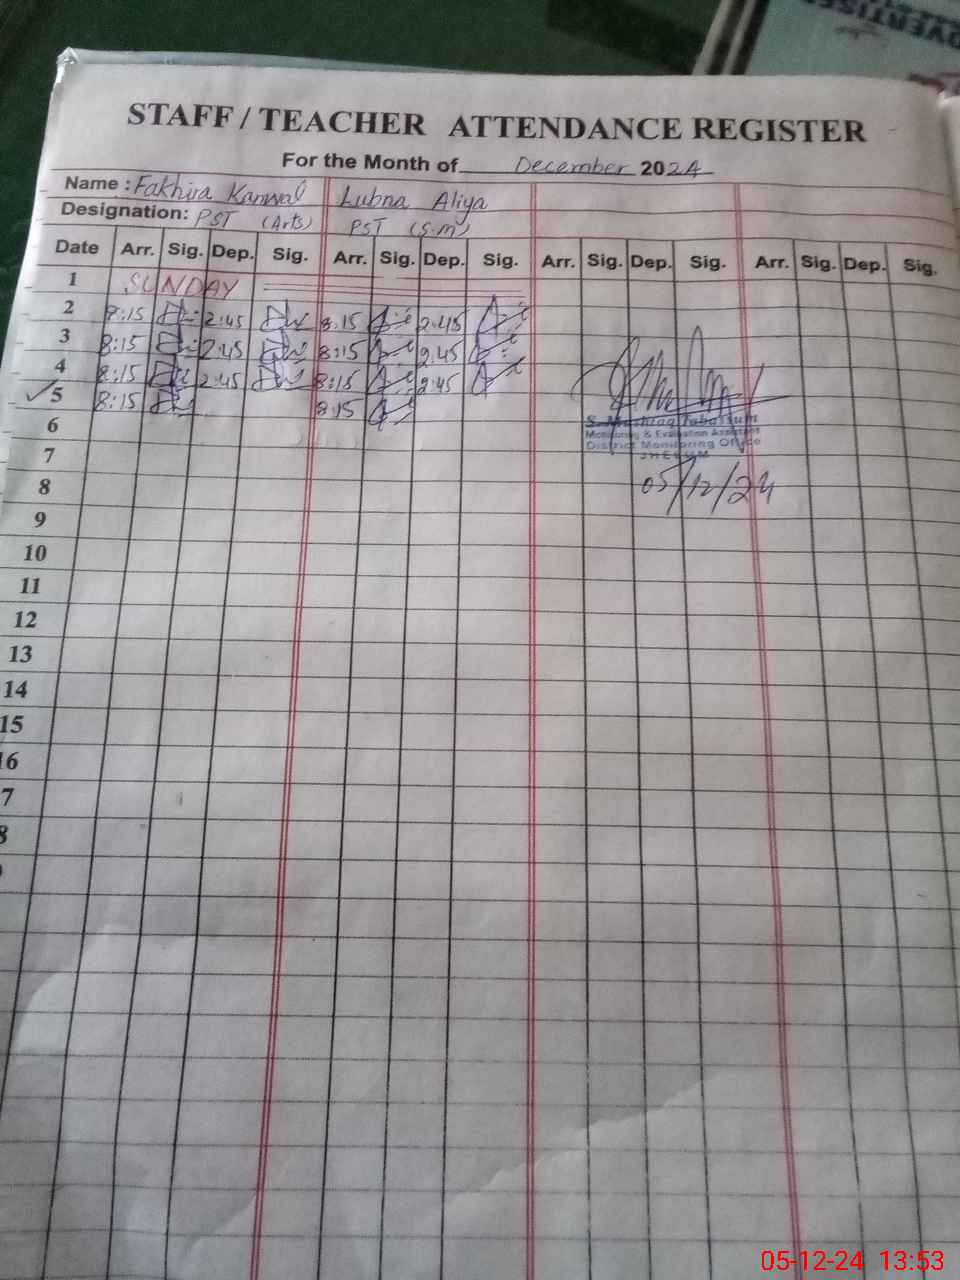 ADVERTISE
STAFF / TEACHER ATTENDANCE REGISTER
For the Month of December 2024
Name : Fakhira Kanwal Lubna Aliya
Designation: PST (Arts) PST (S.M)
Date Arr. Sig. Dep. Sig. Arr. Sig. Dep. Sig. Arr. Sig. Dep. Sig. Arr. Sig. Dep. Sig.
1 SUNDAY
2 8:15 2:45 8:15 2:45
3 8:15 2:45 8:15 2:45
4 8:15 2:45 8:15 2:45
5 8:15 8:15
6
S. Mushtaq Tabassum
Monitoring & Evaluation Assistant
District Monitoring Office
JHELUM
7
8 05/12/24
9
10
11
12
13
14
15
16
7
8
05-12-24 13:53